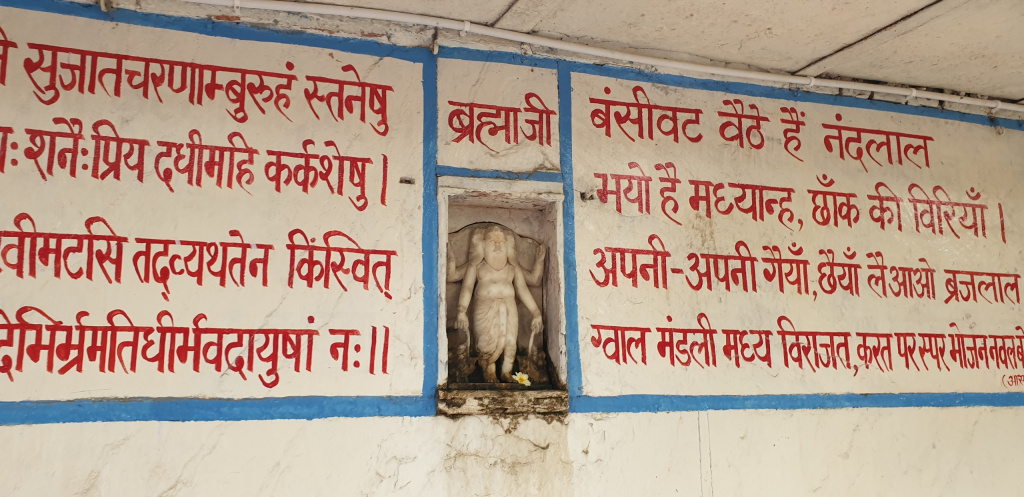 सुजातचरणाम्बुरुहं स्तनेषु
शनैःप्रिय दधीमहि कर्कशेषु।
तद्व्यथतेन किंस्वित्
र्भ्रमतिधीर्भवदायुषां नः॥
ब्रह्माजी
बंसीवट वैठे हैं नंदलाल
भयो है मध्यान्ह, छाँक की विरियाँ।
अपनी-अपनी गैयाँ,छैयाँ लैआओ ब्रजलाल
ग्वाल मंडली मध्य विराजत,करत परस्पर भोजन